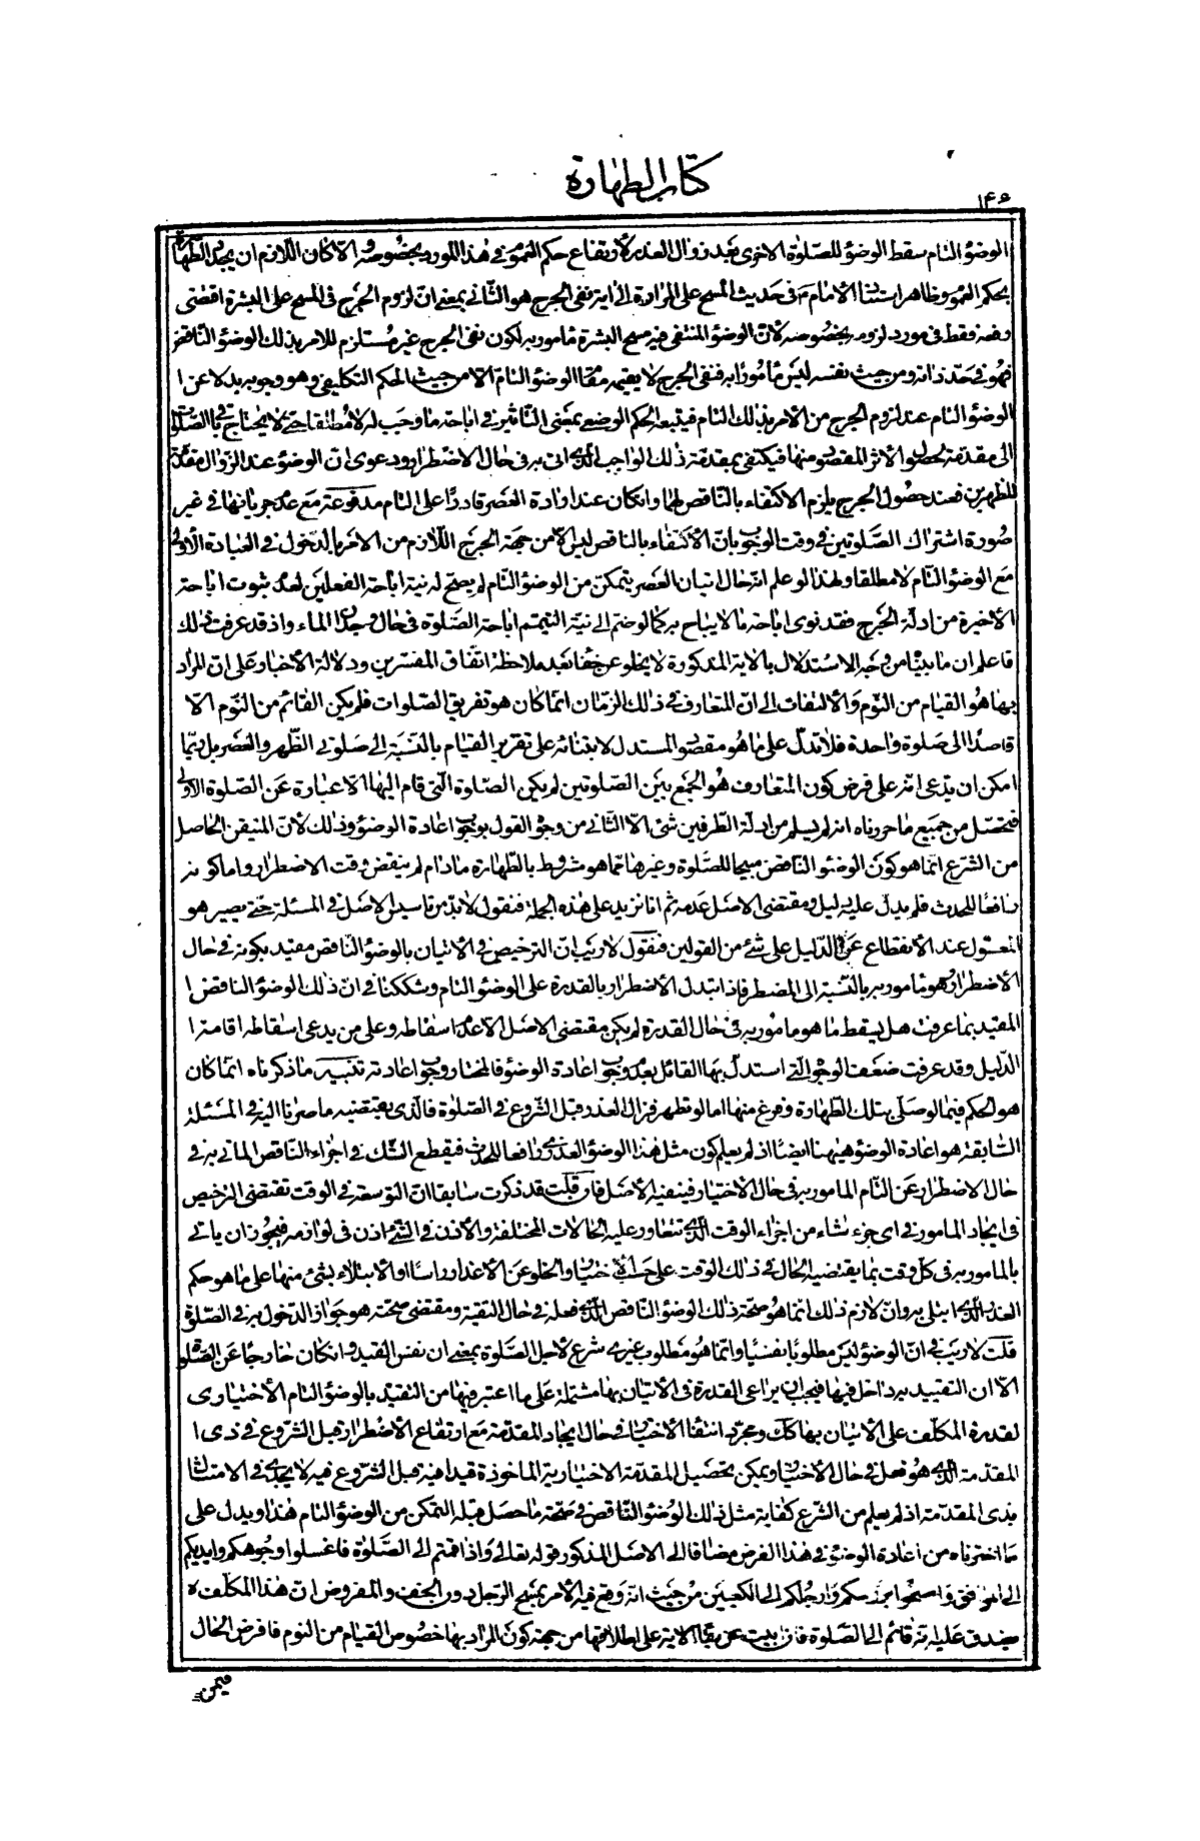 كتاب الطهارة
١٤٠
الوضوء التام سقط الوضوء للصلوة الاخرى بعد زوال العذر لارتفاع حكم العموم في هذا المورد بخصوصه والا كان اللازم ان يجدد الطهارة
بحكم العموم وظاهر استناد الامام ع في حديث المسح على المرارة الى اية نفى الحرج هو الثاني بمعنى ان لزوم الحرج في المسح على البشرة اقتضى
رفعه فقط في مورد لزومه بخصوصه لان الوضوء المنتفى فيه مسح البشرة مأمور به لكون نفى الحرج غير مستلزم للامر بذلك الوضوء الناقص
فهو في حد ذاته ومن حيث نفسه ليس مأمورا به فنفى الحرج لا يقيمه مقام الوضوء التام الا من حيث الحكم التكليفي وهو وجوبه بدلا عن
الوضوء التام عند لزوم الحرج من الامر بذلك التام فيتبعه الحكم الوضعي بمعنى التأثير في اباحة ما وجب له لا مطلقا حتى لا يحتاج باقي الصلوات
الى مقدمة لحصول الاثر المقصود منها فيكتفى بمقدمة ذلك الواجب الذي اتى به في حال الاضطرار ودعوى ان الوضوء عند الزوال مقدمة
للظهرين فعند حصول الحرج يلزم الاكتفاء بالناقص لهما وان كان عند ارادة العصر قادرا على التام مدفوعة مع عدم جريانها في غير
صورة اشتراك الصلوتين في وقت الوجوب بان الاكتفاء بالناقص ليس الا من جهة الحرج اللازم من الامر بالدخول في العبادة الاولى
مع الوضوء التام لا مطلقا ولهذا لو علم انه حال اتيان العصر يتمكن من الوضوء التام لم يصح له نية اباحة الفعلين لعدم ثبوت اباحة
الاخيرة من ادلة الحرج فقد نوى اباحة ما لا يباح به كما لو ضم الى نية التيمم اباحة الصلوة في حال وجدان الماء واذ قد عرفت ذلك
فاعلم ان ما بينا من وجه الاستدلال بالاية المذكورة لا يخلو عن خفاء بعد ملاحظة اتفاق المفسرين ودلالة الاخبار على ان المراد
بها هو القيام من النوم والالتفات الى ان المتعارف في ذلك الزمان انما كان هو تفريق الصلوات فلم يكن القائم من النوم الا
قاصدا الى صلوة واحدة فلا تدل على ما هو مقصود المستدل لابتنائه على تقرير القيام بالنسبة الى صلوتى الظهر والعصر بل ربما
امكن ان يدعى انه على فرض كون المتعارف هو الجمع بين الصلوتين لم يكن الصلوة التي قام اليها الا عبارة عن الصلوة الاولى
فتحصل من جميع ما حررناه انه لم يسلم من ادلة الطرفين شئ الا الثاني من وجوه القول بوجوب اعادة الوضوء وذلك لان المتيقن الحاصل
من الشرع انما هو كون الوضوء الناقص مبيحا للصلوة وغيرها مما هو مشروط بالطهارة ما دام لم ينقض وقت الاضطرار واما كونه
رافعا للحدث فلم يدل عليه دليل ومقتضى الاصل عدمه ثم انا نزيد على هذه الجملة فنقول لا بد من تاسيس الاصل في المسئلة حتى يصير هو
المعول عند الانقطاع عن الدليل على شئ من القولين فنقول لا ريب ان الترخيص في الاتيان بالوضوء الناقص مقيد بكونه في حال
الاضطرار وهو مأمور به بالنسبة الى المضطر فاذا تبدل الاضطرار بالقدرة على الوضوء التام وشككنا في ان ذلك الوضوء الناقص
المقيد بما عرفت هل يسقط ما هو مأمور به في حال القدرة لم يكن مقتضى الاصل الا عدم اسقاطه وعلى من يدعى اسقاطه اقامة
الدليل وقد عرفت ضعف الوجوه التي استدل بها القائل بعدم وجوب اعادة الوضوء فالمختار وجوب اعادته تنبيه ما ذكرناه انما كان
هو الحكم فيما لو صلى بتلك الطهارة وفرغ منها اما لو تطهر فزال العذر قبل الشروع في الصلوة فالذي يقتضيه ما صرنا اليه في المسئلة
السابقة هو اعادة الوضوء هيهنا ايضا اذ لم يعلم كون مثل هذا الوضوء العذري رافعا للحدث فيقطع الشك في اجزاء الناقص المأتى به في
حال الاضطرار عن التام المأمور به في حال الاختيار فينفيه الاصل فان قلت قد ذكرت سابقا ان التوسعة في الوقت تقتضى الترخيص
في ايجاد المأمور في اي جزء شاء من اجزاء الوقت الذي تتعاور عليه الحالات المختلفة والاذن في الشئ اذن في لوازمه فيجوز ان يأتي
بالمأمور به في كل وقت بما يقتضيه الحال في ذلك الوقت على حسب الاختيار والخلو عن الاعذار راسا او الابتلاء بشئ منها على ما هو حكم
العذر الذي ابتلى به وان لازم ذلك انما هو صحة ذلك الوضوء الناقص الذي فعله في حال التقية ومقتضى صحته هو جواز الدخول به في الصلوة
قلت لا ريب في ان الوضوء ليس مطلوبا نفسيا وانما هو مطلوب غيري شرع لاجل الصلوة بمعنى ان نفس القيد وان كان خارجا عن الصلوة
الا ان التقييد به داخل فيها فيجب ان يراعى القدرة في الاتيان بها مشتملة على ما اعتبر فيها من التقيد بالوضوء التام الاختياري
لقدرة المكلف على الاتيان بها كك ومجرد انتفاء الاختيار في حال ايجاد المقدمة مع ارتفاع الاضطرار قبل الشروع في ذي
المقدمة الذي هو فعل في حال الاختيار ويمكن تحصيل المقدمة الاختيارية الماخوذة قيدا فيه قبل الشروع فيه لا يجدي في الامتثال
بذي المقدمة اذ لم يعلم من الشرع كفاية مثل ذلك الوضوء الناقص في صحة ما حصل قبله التمكن من الوضوء التام هذا ويدل على
ما اخترناه من اعادة الوضوء في هذا الفرض مضافا الى الاصل المذكور قوله تعالى واذا قمتم الى الصلوة فاغسلوا وجوهكم وايديكم
الى المرافق وامسحوا برؤسكم وارجلكم الى الكعبين من حيث انه وقع فيه الامر بمسح الرجل دون الخف والمفروض ان هذا المكلف
يصدق عليه انه قائم الى الصلوة فان ابيت عن بقاء الاية على اطلاقها من جهة كون المراد بها خصوص القيام من النوم فافرض الحال
فيمن